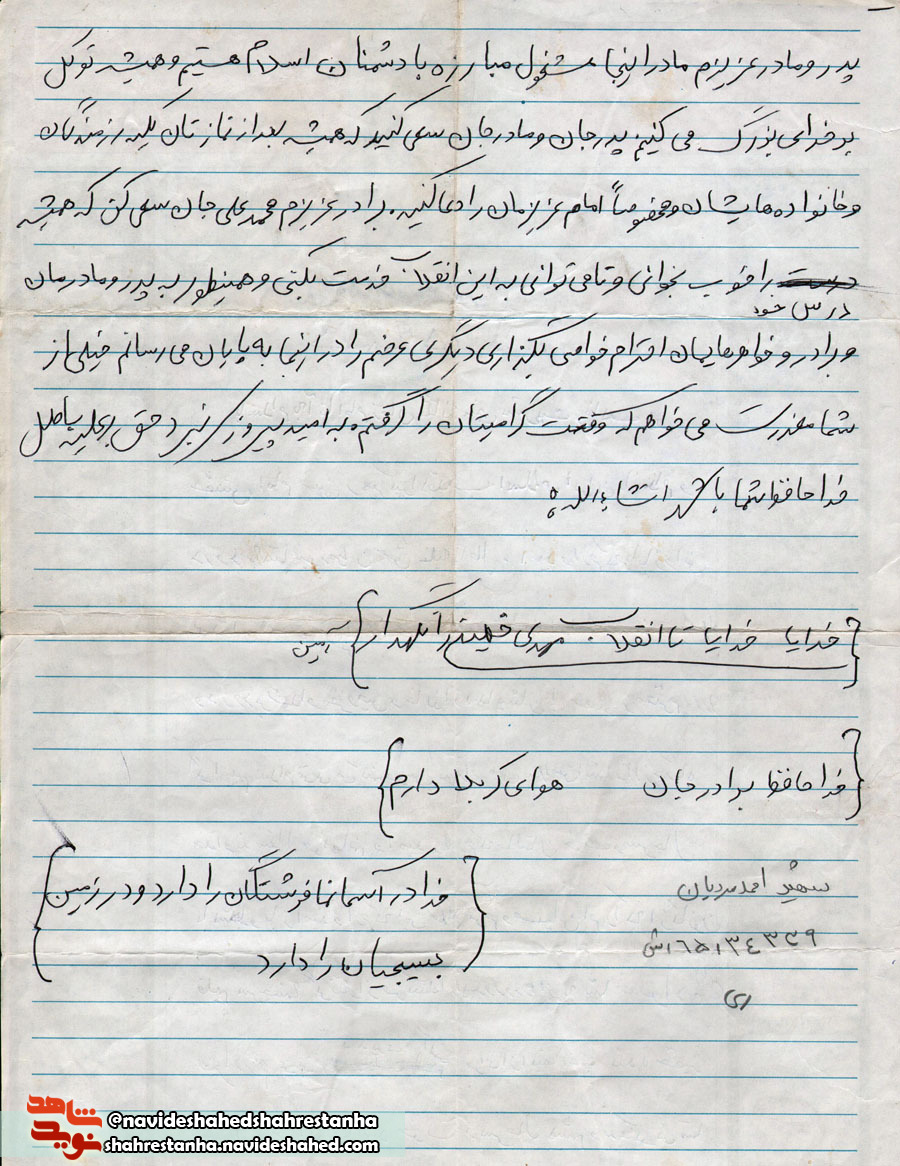 پدر و مادر عزیزم ما در اینجا مشغول مبارزه با دشمنان اسلام هستیم و همیشه توکل
بر خدای بزرگ می کنیم پدر جان و مادر جان سعی کنید که همیشه بعد از نماز تان بکله رزمندگان
و خانواده هایشان و مخصوصاً امام عزیزمان را دعا کنید. برادر عزیزم محمد علی جان سعی کن که همیشه
درس خود را خوب بخوانی و تا می توانی به این انقلاب خدمت بکنی و همینطور به پدر و مادرمان
و برادر و خواهرهایمان احترام خواصی بگذاری دیگری عرضم را در اینجا به پایان می رسانم خیلی از
شما معذرت می خواهم که وقت گرامیتان را گرفتم. به امید پیروزی نبرد حق بر علیه باطل
خدا حافظ شما باشد انشاءالله
{خدایا خدایا تا انقلاب مهدی خمینی را نگهدار} آمین
{خدا حافظ برادر جان هوای کربلا دارم}
{خدا در آسمانها فرشتگان را دارد و در زمین
بسیجیان را دارد}
شهید احمد مردیان
ری
شاهد
نوید
@navideshahedshahrestanha
shahrestanha.navideshahed.com